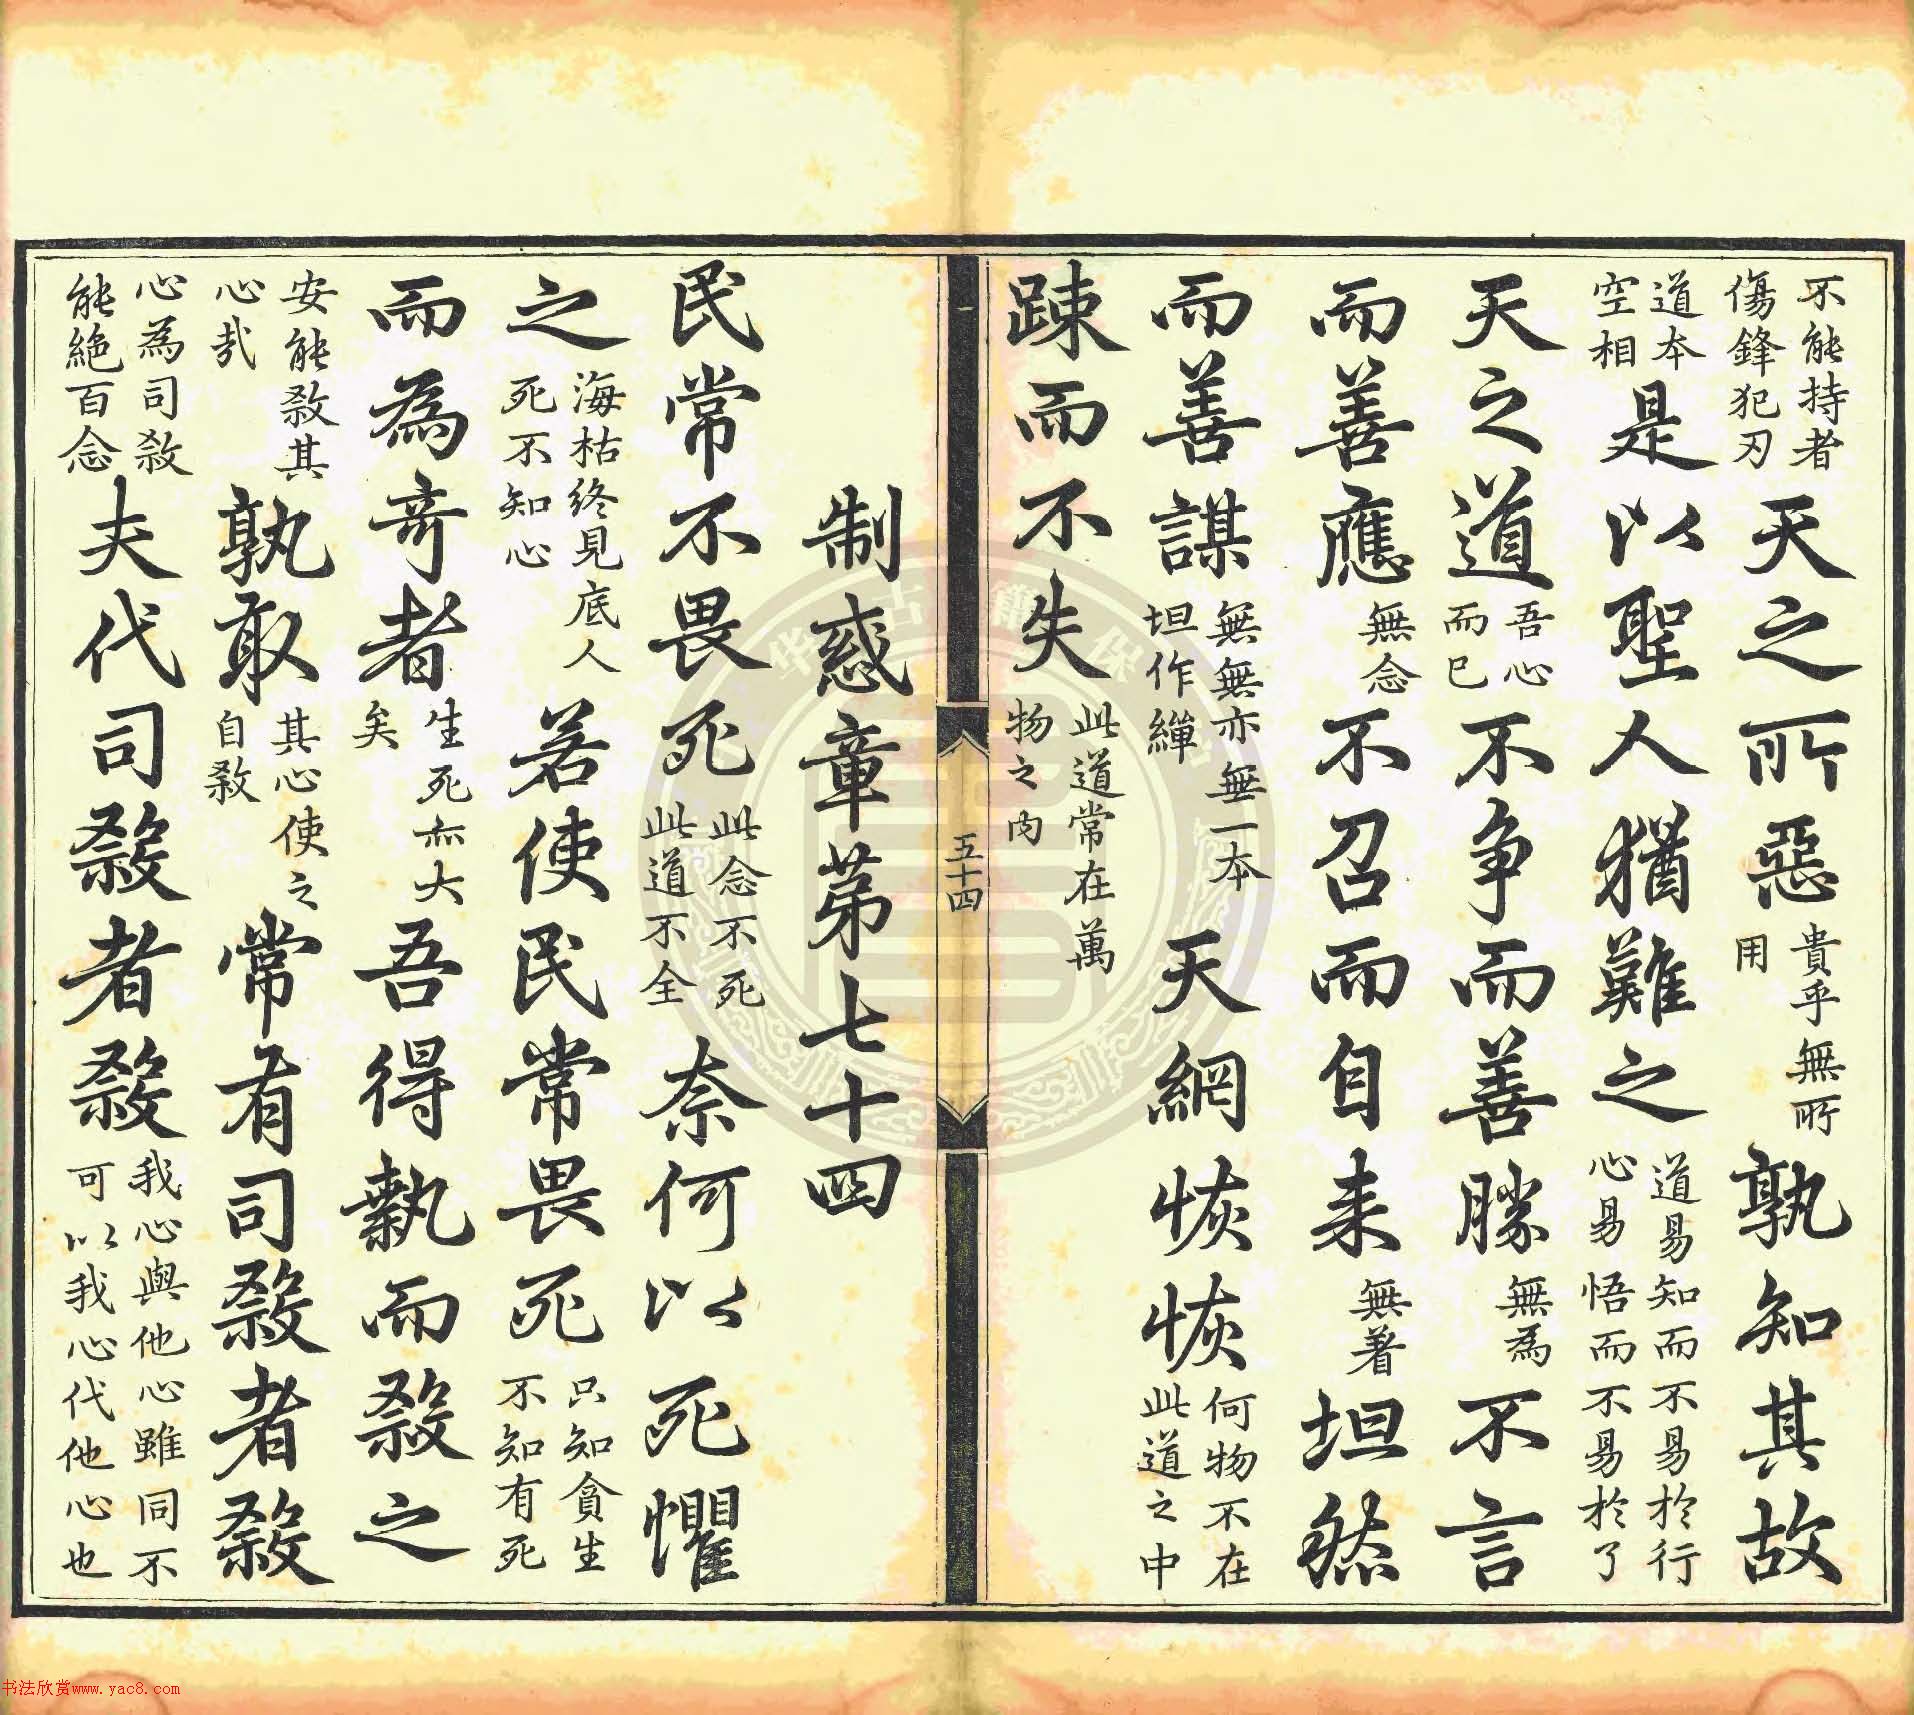 不能持者傷鋒犯刃天之所惡貴乎無所用孰知其故
道本空相是以聖人猶難之道易知而不易於行心易悟而不易於了
天之道吾心而已不争而善勝無為不言
而善應無念不召而自来無著坦然
而善謀無無亦無一本坦作繟天網恢恢何物不在此道之中
踈而不失此道常在萬物之內
五十四
制惑章苐七十四
民常不畏死此念不死此道不全奈何以死懼
之海枯終見底人死不知心若使民常畏死只知貪生不知有死
而為奇者生死亦大矣吾得執而殺之
安能殺其心哉孰敢其心使之自殺常有司殺者殺
心為司殺能絕百念夫代司殺者殺我心與他心雖同不可以我心代他心也
书法欣赏www.yac8.com